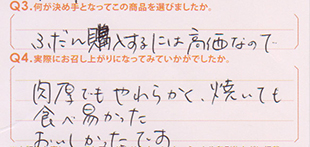 Q3.何が決め手となってこの商品を選びましたか。
ふだん購入するには高価なので
Q4.実際にお召し上がりになってみていかがでしたか。
肉厚でもやわらかく、焼いても
食べ易かった
おいしかったです